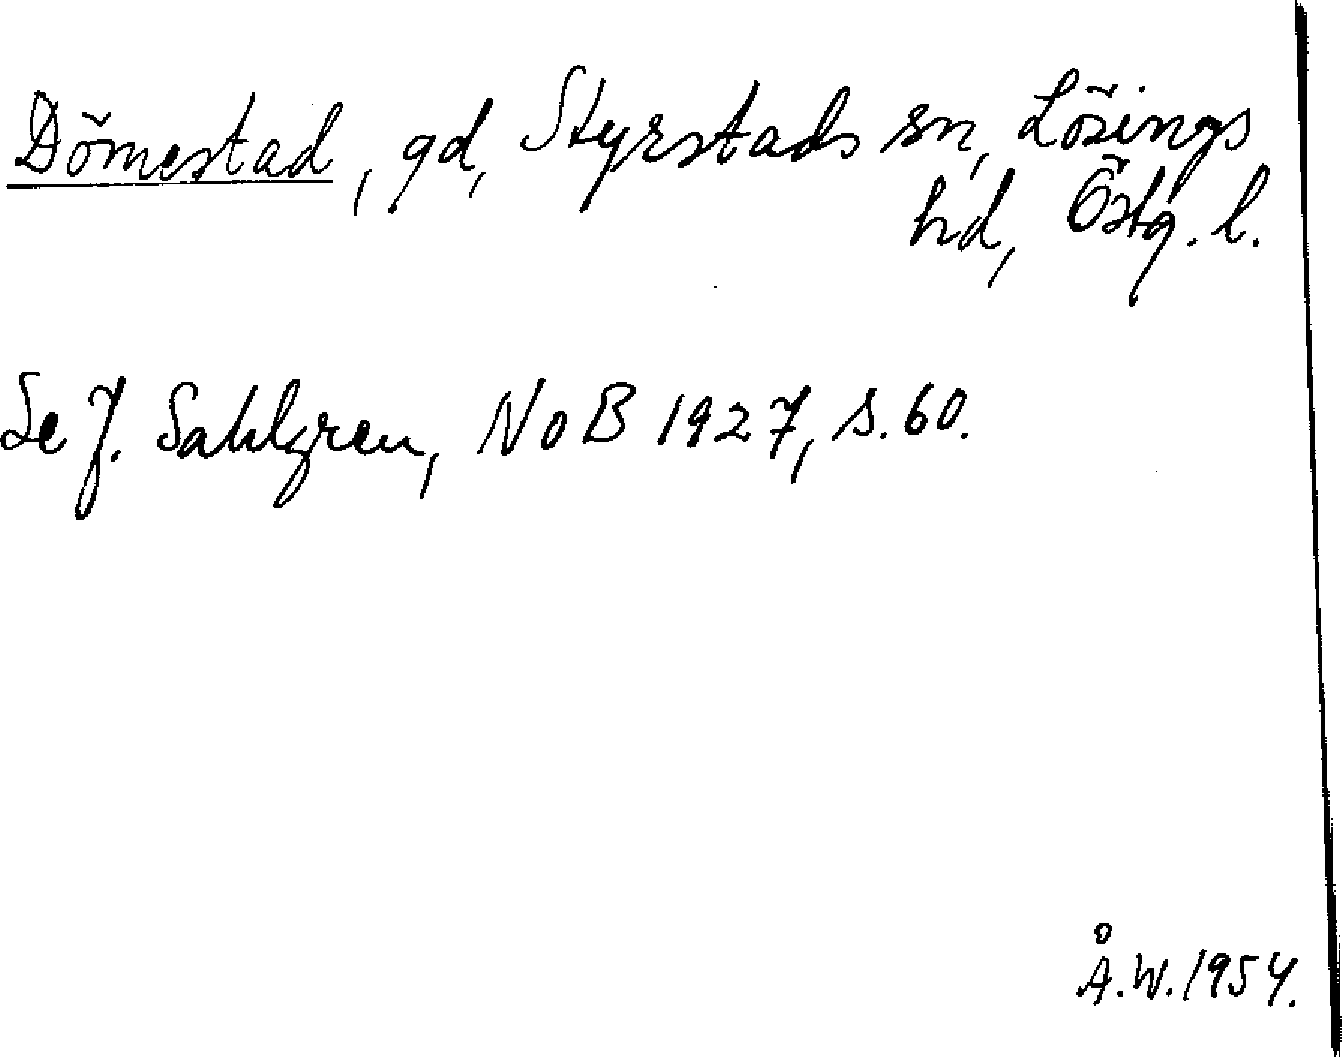 Dömestad, gd, Styrstads sn, Lösings
hd, Östg. l.
Se J. Sahlgren, NoB 1927, s. 60.
Å.W. 1954.